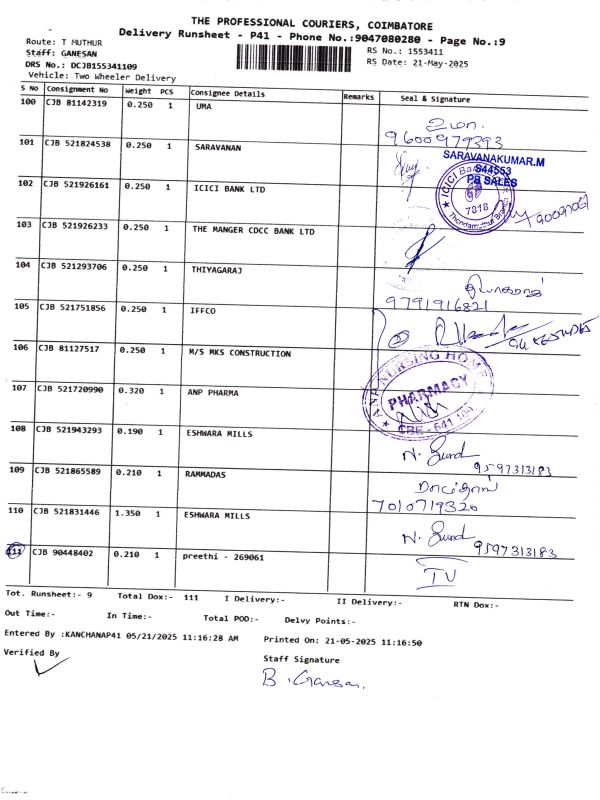 THE PROFESSIONAL COURIERS, COIMBATORE
Delivery Runsheet - P41 - Phone No.:9047080280 - Page No.:9
Route: T MUTHUR
Staff: GANESAN
DRS No.: DCJB155341109
Vehicle: Two Wheeler Delivery
RS No.: 1553411
RS Date: 21-May-2025
S No Consignment No Weight PCS Consignee Details Remarks Seal & Signature
100 CJB 81142319 0.250 1 UMA
உமா.
9600979393
101 CJB 521824538 0.250 1 SARAVANAN
SARAVANAKUMAR.M
S44553
PB SALES
102 CJB 521926161 0.250 1 ICICI BANK LTD
ICICI Bank
7318
103 CJB 521926233 0.250 1 THE MANGER CDCC BANK LTD
104 CJB 521293706 0.250 1 THIYAGARAJ
தியாகராஜ்
9791916821
105 CJB 521751856 0.250 1 IFFCO
106 CJB 81127517 0.250 1 M/S MKS CONSTRUCTION
107 CJB 521720990 0.320 1 ANP PHARMA
NURSING HOME
PHARMACY
CBE - 641
108 CJB 521943293 0.190 1 ESHWARA MILLS
9597313183
109 CJB 521865589 0.210 1 RAMMADAS
ராமதாஸ்
7010719320
110 CJB 521831446 1.350 1 ESHWARA MILLS
9597313183
111 CJB 90448402 0.210 1 preethi - 269061
IV
Tot. Runsheet:- 9 Total Dox:- 111 I Delivery:- II Delivery:- RTN Dox:-
Out Time:- In Time:- Total POD:- Delvy Points:-
Entered By :KANCHANAP41 05/21/2025 11:16:28 AM Printed On: 21-05-2025 11:16:50
Verified By
Staff Signature